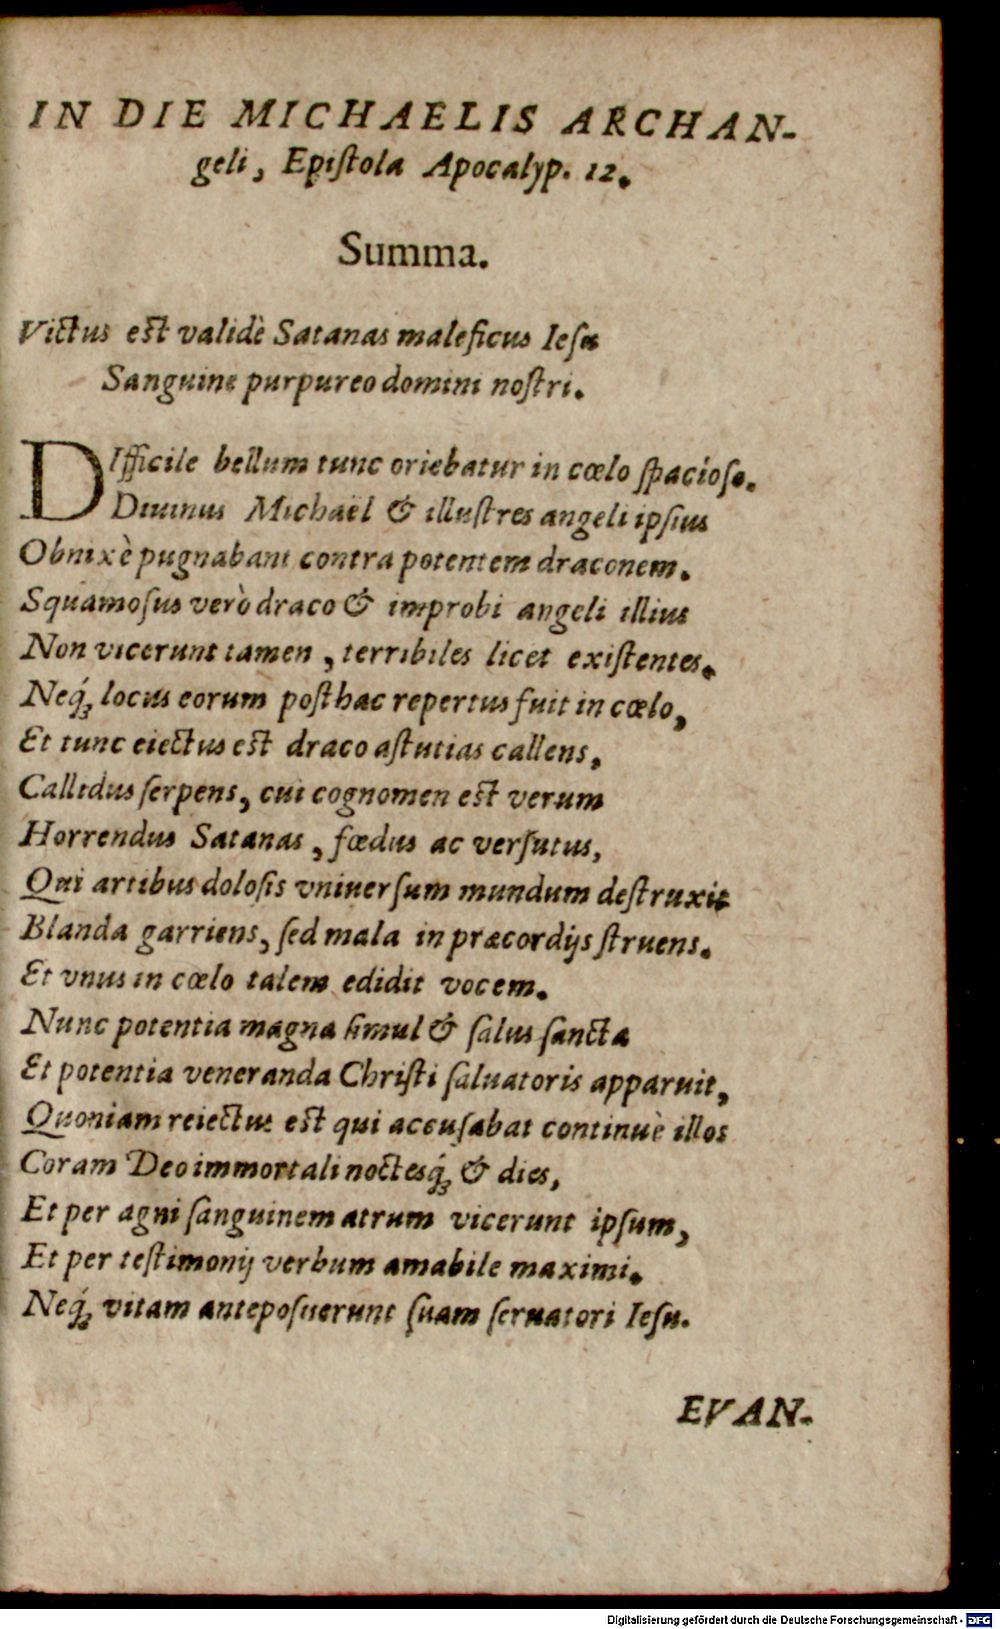 IN DIE MICHAELIS ARCHAN-
geli, Epiſtola Apocalyp. 12.
Summa.
Victus eſt validè Satanas maleficus Ieſu
Sanguine purpureo domini noſtri.
DIfficile bellum tunc oriebatur in cœlo ſpacioſo.
Diuinus Michaël & illuſtres angeli ipſius
Obnixè pugnabant contra potentem draconem.
Squamoſus verò draco & improbi angeli illius
Non vicerunt tamen, terribiles licet exiſtentes.
Neq́; locus eorum poſthac repertus fuit in cœlo,
Et tunc eiectus eſt draco aſtutias callens,
Callidus ſerpens, cui cognomen eſt verum
Horrendus Satanas, fœdus ac verſutus,
Qui artibus doloſis vniuerſum mundum deſtruxit
Blanda garriens, ſed mala in præcordijs ſtruens.
Et vnus in cœlo talem edidit vocem.
Nunc potentia magna ſimul & ſalus ſancta
Et potentia veneranda Chriſti ſaluatoris apparuit,
Quoniam reiectus eſt qui accuſabat continuè illos
Coram Deo immortali noctesq́; & dies,
Et per agni ſanguinem atrum vicerunt ipſum,
Et per teſtimonij verbum amabile maximi.
Neq́; vitam antepoſuerunt ſuam ſeruatori Ieſu.
EVAN-
Digitalisierung gefördert durch die Deutsche Forschungsgemeinschaft - DFG